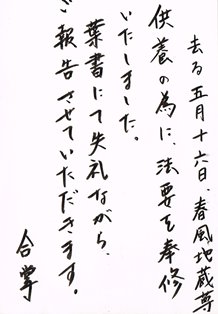 去る五月十六日、春風地蔵尊
供養の為に、法要を奉修
いたしました。
葉書にて失礼ながら、
ご報告させていただきます。
合掌